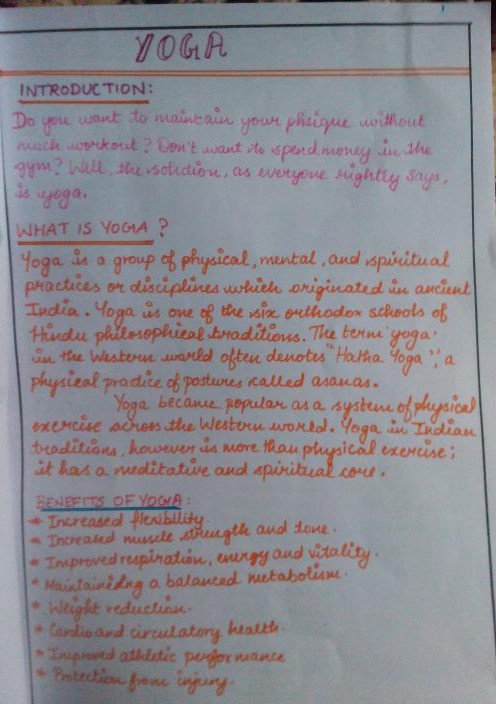 YOGA
INTRODUCTION:
Do you want to maintain your phsique without
much workout? Don't want to spend money in the
gym? Well, the solution, as everyone rightly says,
is yoga.
WHAT IS YOGA?
Yoga is a group of physical, mental, and spiritual
practices or disciplines which originated in ancient
India. Yoga is one of the six orthodox schools of
Hindu philosophical traditions. The term 'yoga'
in the Western world often denotes "Hatha Yoga", a
physical practice of postures called asanas.
Yoga became popular as a system of physical
exercise across the Western world. Yoga in Indian
traditions, however is more than physical exercise;
it has a meditative and spiritual core.
BENEFITS OF YOGA:
* Increased flexibility.
* Increased muscle strength and tone.
* Improved respiration, energy and vitality.
* Maintaining a balanced metabolism.
* Weight reduction.
* Cardio and circulatory health.
* Improved athletic performance
* Protection from injury.